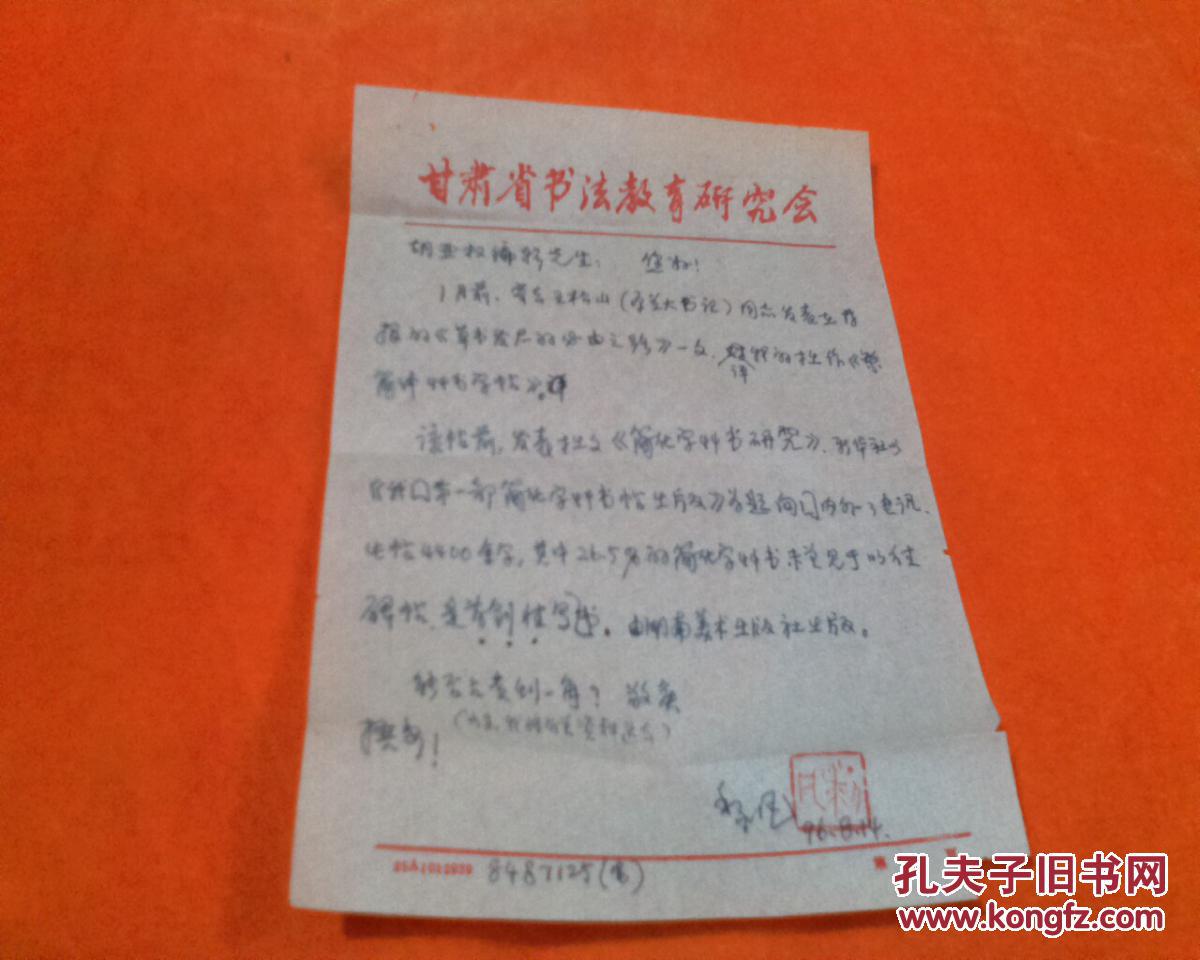 甘肃省书法教育研究会
胡亚权编辑先生: 您好!
1月前,同志发表在
报的《草书发展的必由之路》一文,评的拙作《繁
简体草书字帖》。
该帖前,发表拙文《简化字草书研究》,新华社以
《我国第一部简化字草书帖出版》为题向国内外电讯,
此帖4400余字,其中26.5%的简化字草书未曾见于以往
碑帖,是首创性写法。由湖南美术出版社出版。
能否占贵刊一角?敬矣
撰安!
96.8.14.
8487125(宅)
第
页
孔夫子旧书网
www.kongfz.com